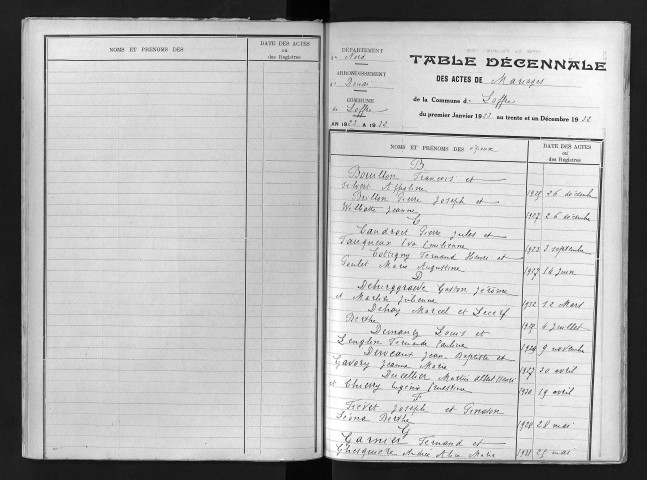 NOMS ET PRÉNOMS DES
DATE DES ACTES
ou
des Registres
DÉPARTEMENT
du Nord
ARRONDISSEMENT
de Douai
COMMUNE
de Loffre
AN 1923 A 1932
TABLE DÉCENNALE
DES ACTES DE Mariages
de la Commune de Loffre
du premier Janvier 1923 au trente et un Décembre 1932
NOMS ET PRÉNOMS DES époux
DATE DES ACTES
ou
des Registres
B
Bouillon François et
Appoline 1925 26 décembre
Brillon Pierre Joseph et
Jeanne 1927 26 décembre
C
Candroit Pierre Jules et
Fauqueux Eva Emilienne 1923 3 septembre
Cottigny Fernand Henri et
Goulet Marie Augustine 1927 14 juin
D
Deburggraeve Gaston Jérôme
et Julienne 1932 12 Mars
Dehay Marcel et Lecerf
Berthe 6 juillet
Demancy Louis et
Lenglin Fernande Pauline 1924 9 novembre
Derveaux Jean Baptiste et
Gavory Jeanne Marie 1927 20 avril
Ducellier Martin Albert Henri
et Thierry Eugénie Ernestine 1920 19 avril
F
Fiévet Joseph et
Berthe 1928 28 mai
G
Garnier Fernand et
Ghesquière Andrée Marie 25 mai